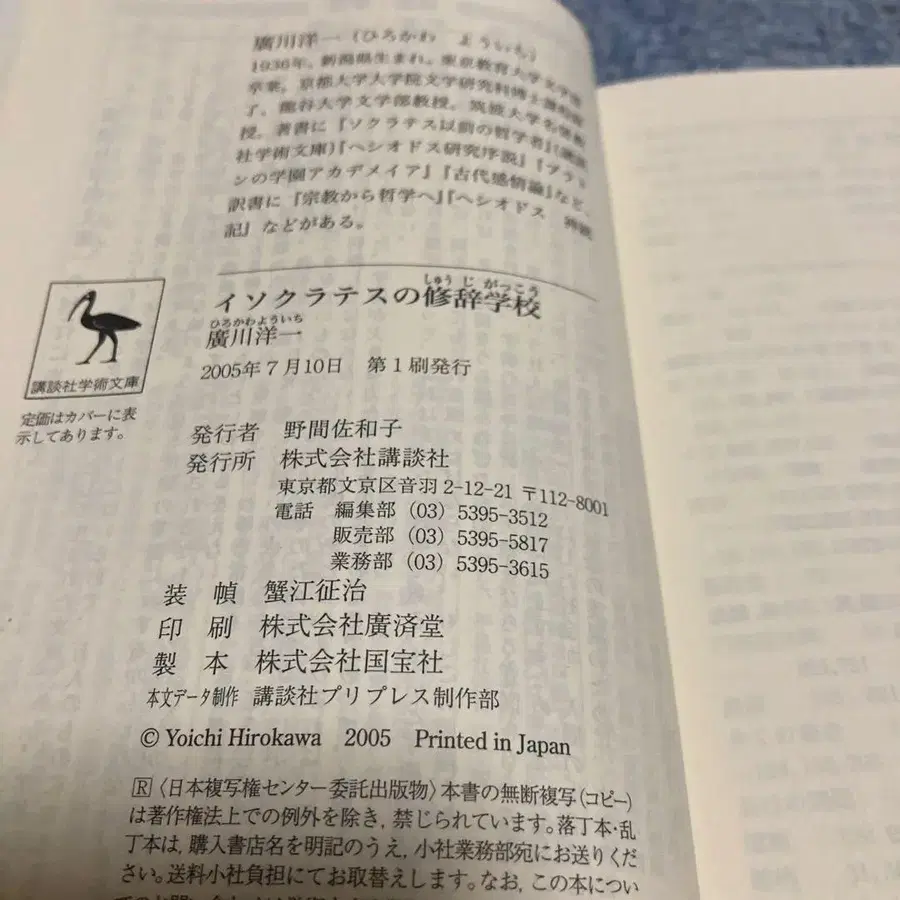 廣川洋一(ひろかわ よういち)
1936年，新潟県生まれ。東京教育大学文学部
卒業，京都大学大学院文学研究科博士課程修
了。龍谷大学文学部教授，筑波大学名誉教
授。著書に『ソクラテス以前の哲学者』(講談
社学術文庫)『ヘシオドス研究序説』『プラト
ンの学園アカデメイア』『古代感情論』など，
訳書に『宗教から哲学へ』『ヘシオドス 神統
記』などがある。
しゅうじがっこう
イソクラテスの修辞学校
ひろかわよういち
廣川洋一
2005年7月10日 第1刷発行
講談社学術文庫
定価はカバーに表
示してあります。
発行者 野間佐和子
発行所 株式会社講談社
東京都文京区音羽 2-12-21 〒112-8001
電話 編集部 (03) 5395-3512
販売部 (03) 5395-5817
業務部 (03) 5395-3615
装 幀 蟹江征治
印 刷 株式会社廣済堂
製 本 株式会社国宝社
本文データ制作 講談社プリプレス制作部
© Yoichi Hirokawa 2005 Printed in Japan
R〈日本複写権センター委託出版物〉本書の無断複写(コピー)
は著作権法上での例外を除き，禁じられています。落丁本・乱
丁本は，購入書店名を明記のうえ，小社業務部宛にお送りくだ
さい。送料小社負担にてお取替えします。なお，この本につい